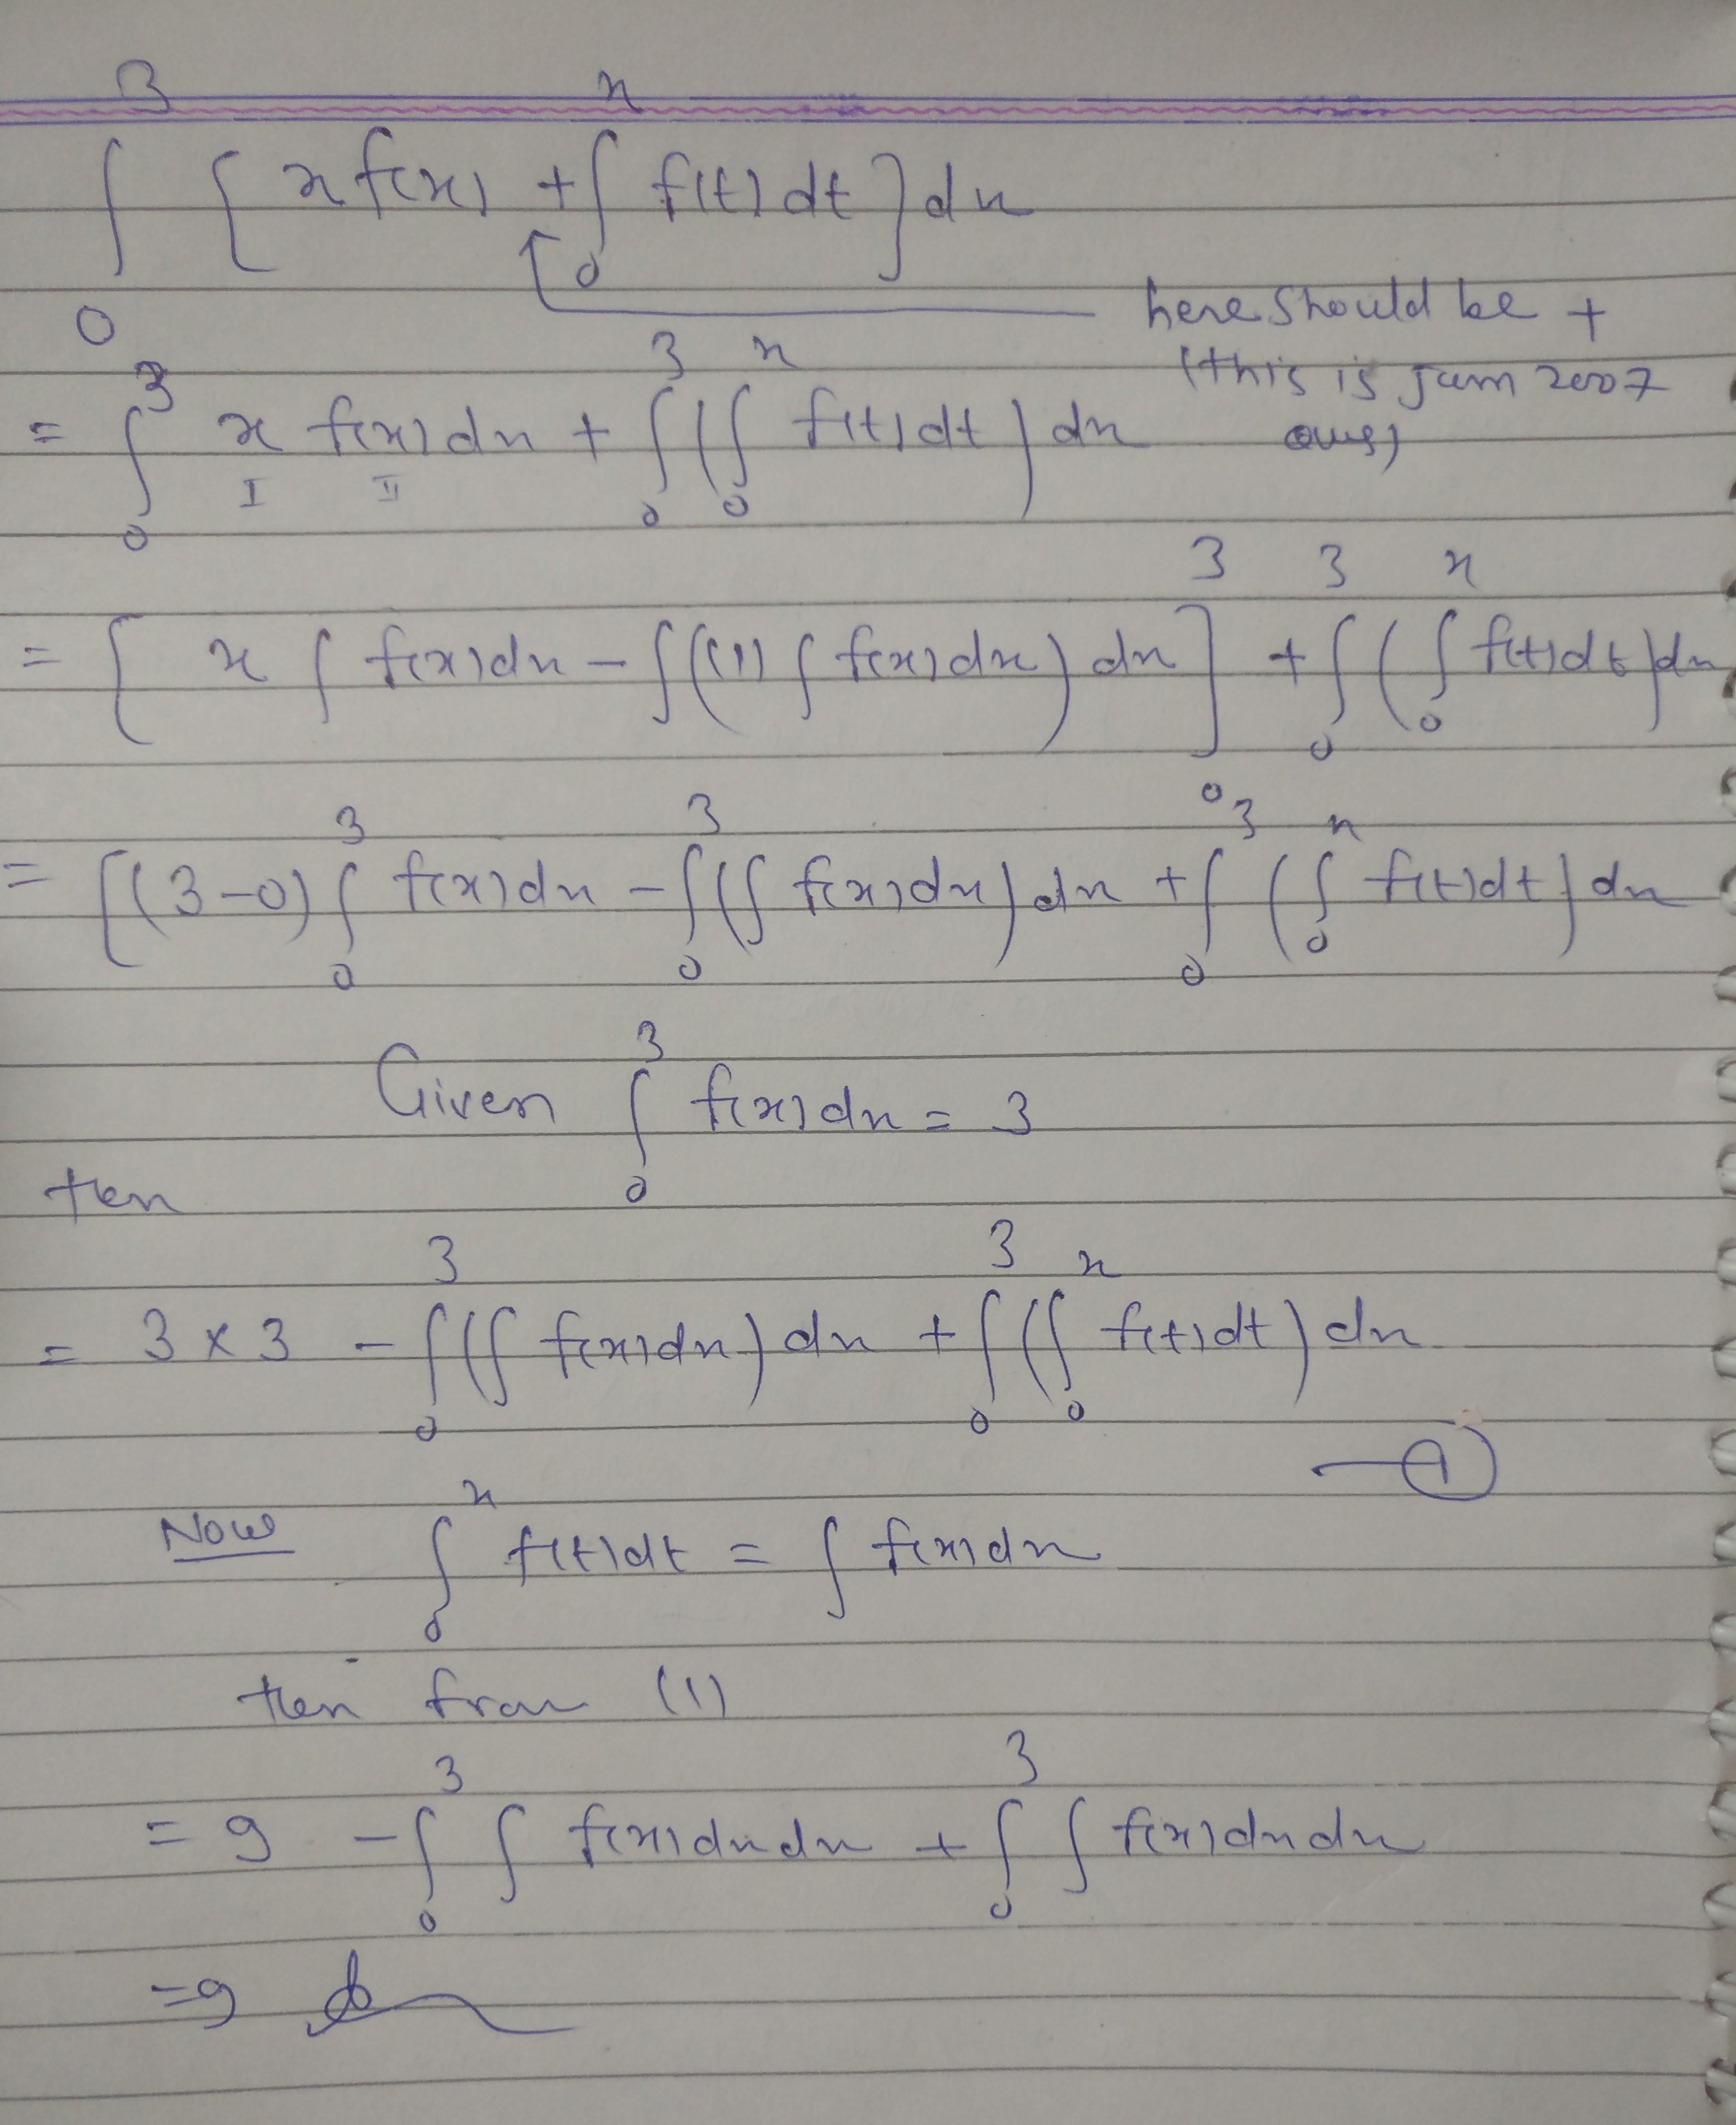 ∫₀³ [ x f(x) + ∫₀ˣ f(t) dt ] dx
here should be +
(this is jam 2007
ques)
= ∫₀³ x f(x) dx + ∫₀³ ( ∫₀ˣ f(t) dt ) dx
I II
= [ x ∫ f(x) dx - ∫ ( (1) ∫ f(x) dx ) dx ]₀³ + ∫₀³ ( ∫₀ˣ f(t) dt ) dx
= [ (3-0) ∫₀³ f(x) dx - ∫₀³ ( ∫ f(x) dx ) dx + ∫₀³ ( ∫₀ˣ f(t) dt ) dx
Given ∫₀³ f(x) dx = 3
then
= 3 × 3 - ∫₀³ ( ∫ f(x) dx ) dx + ∫₀³ ( ∫₀ˣ f(t) dt ) dx
— (1)
Now ∫₀ˣ f(t) dt = ∫ f(x) dx
then from (1)
= 9 - ∫₀³ ∫ f(x) dx dx + ∫₀³ ∫ f(x) dx dx
= 9